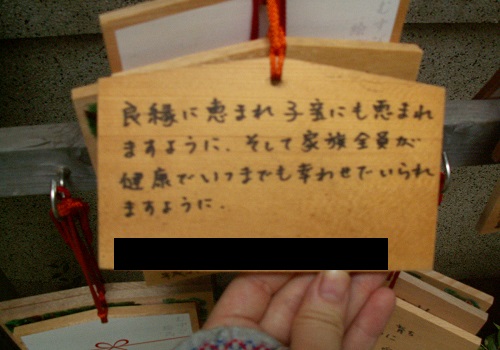 良縁に恵まれ子宝にも恵まれ
ますように.そして家族全員が
健康でいつまでも幸わせでいられ
ますように.